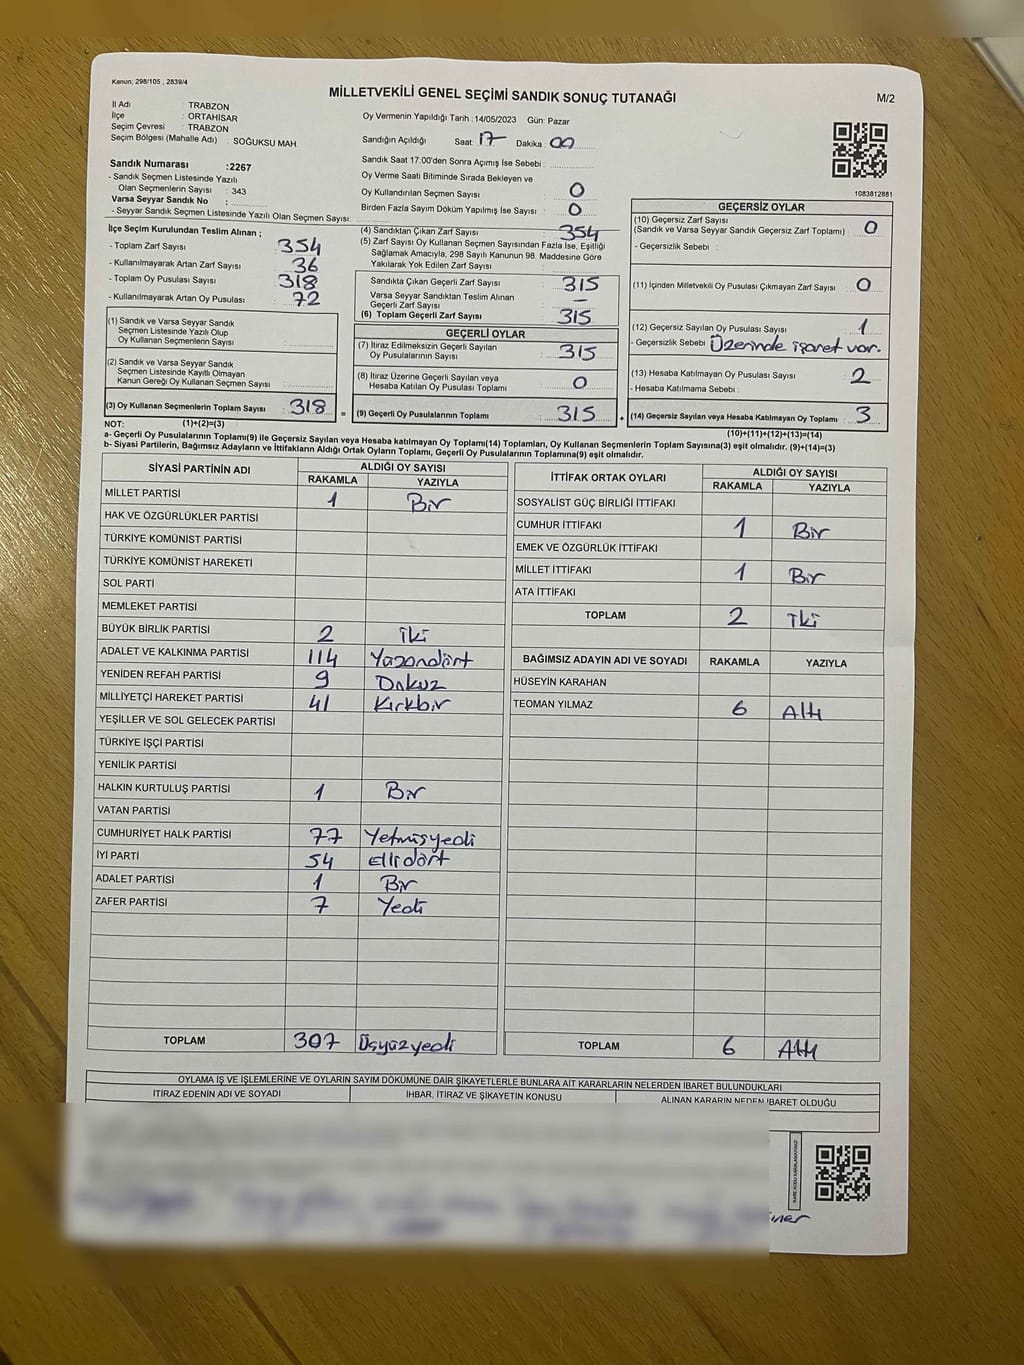 Kanun: 298/105 , 2839/4
MİLLETVEKİLİ GENEL SEÇİMİ SANDIK SONUÇ TUTANAĞI
M/2
İl Adı : TRABZON
İlçe : ORTAHİSAR
Seçim Çevresi : TRABZON
Seçim Bölgesi (Mahalle Adı) : SOĞUKSU MAH.
Sandık Numarası :2267
- Sandık Seçmen Listesinde Yazılı
Olan Seçmenlerin Sayısı : 343
Varsa Seyyar Sandık No :
- Seyyar Sandık Seçmen Listesinde Yazılı Olan Seçmen Sayısı:
Oy Vermenin Yapıldığı Tarih :14/05/2023 Gün: Pazar
Sandığın Açıldığı Saat: 17 Dakika: 00
Sandık Saat 17:00'den Sonra Açımış İse Sebebi :
Oy Verme Saati Bitiminde Sırada Bekleyen ve
Oy Kullandırılan Seçmen Sayısı 0
Birden Fazla Sayım Döküm Yapılmış İse Sayısı : 0
1083812881
İlçe Seçim Kurulundan Teslim Alınan ;
- Toplam Zarf Sayısı : 354
- Kullanılmayarak Artan Zarf Sayısı : 36
- Toplam Oy Pusulası Sayısı : 318
- Kullanılmayarak Artan Oy Pusulası : 72
(1) Sandık ve Varsa Seyyar Sandık
Seçmen Listesinde Yazılı Olup
Oy Kullanan Seçmenlerin Sayısı :
(2) Sandık ve Varsa Seyyar Sandık
Seçmen Listesinde Kayıtlı Olmayan
Kanun Gereği Oy Kullanan Seçmen Sayısı :
(3) Oy Kullanan Seçmenlerin Toplam Sayısı : 318
(1)+(2)=(3)
(4) Sandıktan Çıkan Zarf Sayısı : 354
(5) Zarf Sayısı Oy Kullanan Seçmen Sayısından Fazla İse, Eşitliği
Sağlamak Amacıyla, 298 Sayılı Kanunun 98. Maddesine Göre
Yakılarak Yok Edilen Zarf Sayısı :
Sandıkta Çıkan Geçerli Zarf Sayısı : 315
Varsa Seyyar Sandıktan Teslim Alınan
Geçerli Zarf Sayısı : -
(6) Toplam Geçerli Zarf Sayısı : 315
GEÇERLİ OYLAR
(7) İtiraz Edilmeksizin Geçerli Sayılan
Oy Pusulalarının Sayısı : 315
(8) İtiraz Üzerine Geçerli Sayılan veya
Hesaba Katılan Oy Pusulası Toplamı : 0
= (9) Geçerli Oy Pusulalarının Toplamı : 315
GEÇERSİZ OYLAR
(10) Geçersiz Zarf Sayısı
(Sandık ve Varsa Seyyar Sandık Geçersiz Zarf Toplamı) : 0
- Geçersizlik Sebebi :
(11) İçinden Milletvekili Oy Pusulası Çıkmayan Zarf Sayısı : 0
(12) Geçersiz Sayılan Oy Pusulası Sayısı : 1
- Geçersizlik Sebebi : Üzerinde işaret var.
(13) Hesaba Katılmayan Oy Pusulası Sayısı : 2
- Hesaba Katılmama Sebebi :
+ (14) Geçersiz Sayılan veya Hesaba Katılmayan Oy Toplamı : 3
(10)+(11)+(12)+(13)=(14)
NOT:
a- Geçerli Oy Pusulalarının Toplamı(9) ile Geçersiz Sayılan veya Hesaba katılmayan Oy Toplamı(14) Toplamları, Oy Kullanan Seçmenlerin Toplam Sayısına(3) eşit olmalıdır. (9)+(14)=(3)
b- Siyasi Partilerin, Bağımsız Adayların ve İttifakların Aldığı Ortak Oyların Toplamı, Geçerli Oy Pusulalarının Toplamına(9) eşit olmalıdır.
SİYASİ PARTİNİN ADI ALDIĞI OY SAYISI
RAKAMLA YAZIYLA
MİLLET PARTİSİ 1 Bir
HAK VE ÖZGÜRLÜKLER PARTİSİ
TÜRKİYE KOMÜNİST PARTİSİ
TÜRKİYE KOMÜNİST HAREKETİ
SOL PARTİ
MEMLEKET PARTİSİ
BÜYÜK BİRLİK PARTİSİ 2 iki
ADALET VE KALKINMA PARTİSİ 114 Yüzondört
YENİDEN REFAH PARTİSİ 9 Dokuz
MİLLİYETÇİ HAREKET PARTİSİ 41 Kırkbir
YEŞİLLER VE SOL GELECEK PARTİSİ
TÜRKİYE İŞÇİ PARTİSİ
YENİLİK PARTİSİ
HALKIN KURTULUŞ PARTİSİ 1 Bir
VATAN PARTİSİ
CUMHURİYET HALK PARTİSİ 77 Yetmişyedi
İYİ PARTİ 54 Ellidört
ADALET PARTİSİ 1 Bir
ZAFER PARTİSİ 7 Yedi
TOPLAM 307 Üçyüzyedi
İTTİFAK ORTAK OYLARI ALDIĞI OY SAYISI
RAKAMLA YAZIYLA
SOSYALİST GÜÇ BİRLİĞİ İTTİFAKI
CUMHUR İTTİFAKI 1 Bir
EMEK VE ÖZGÜRLÜK İTTİFAKI
MİLLET İTTİFAKI 1 Bir
ATA İTTİFAKI
TOPLAM 2 iki
BAĞIMSIZ ADAYIN ADI VE SOYADI RAKAMLA YAZIYLA
HÜSEYİN KARAHAN
TEOMAN YILMAZ 6 Altı
TOPLAM 6 Altı
OYLAMA İŞ VE İŞLEMLERİNE VE OYLARIN SAYIM DÖKÜMÜNE DAİR ŞİKAYETLERLE BUNLARA AİT KARARLARIN NELERDEN İBARET BULUNDUKLARI
İTİRAZ EDENİN ADI VE SOYADI İHBAR, İTİRAZ VE ŞİKAYETİN KONUSU ALINAN KARARIN NEDEN İBARET OLDUĞU
KARE KODU KARALAMAYINIZ!